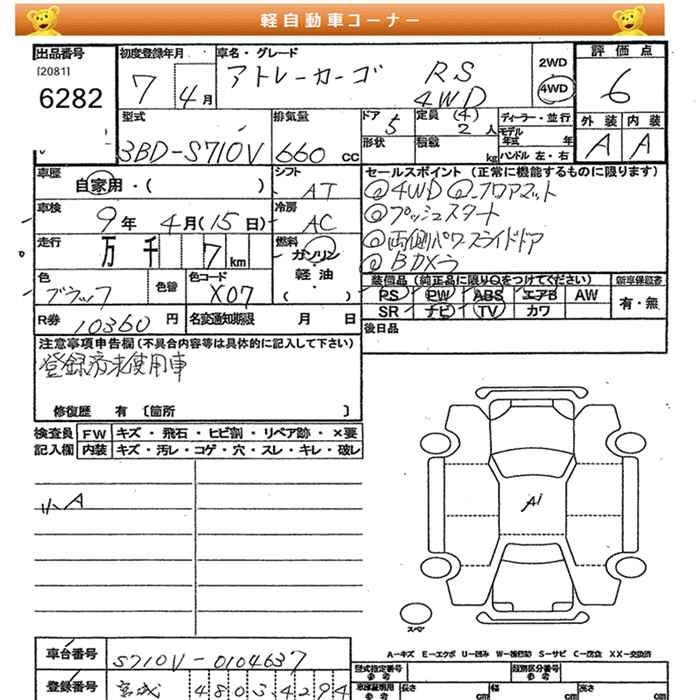 軽自動車コーナー
出品番号 初度登録年月 車名・グレード 評価点
[2081] 7 4月 アトレーカーゴ RS 2WD 6
6282 4WD 4WD
型式 排気量 ドア 定員 (4) ディーラー・並行 外装 内装
3BD-S710V 660 cc 5 2 人 モデル年式 年 A A
形状 積載 kg ハンドル 左・右
車歴 自家用・( ) シフト AT セールスポイント (正常に機能するものに限ります)
車検 9年 4月(15日) 冷房 AC ◎4WD ◎フロアマット
◎プッシュスタート
走行 万 千 7 km 燃料 ガソリン ◎両側パワースライドドア
軽油 ◎BDメラ
色 ブラック 色替 色コード X07 ( ) 装備品 (純正品に限り○をつけてください) 新車保証書
PS PW ABS エアB AW 有・無
R券 10360 円 名変通知期限 月 日 SR ナビ TV カワ
注意事項申告欄 (不具合内容等は具体的に記入して下さい) 後日品
登録済未使用車
修復歴 有 〔箇所 〕
検査員 FW キズ・飛石・ヒビ割・リペア跡・×要
記入欄 内装 キズ・汚レ・コゲ・穴・スレ・キレ・破レ
小A
A1
スペア
A-キズ E-エクボ U-凹み W-補修跡 S-サビ C-腐食 XX-交換済
車台番号 S710V-0104637 型式指定番号 参考 類別区分番号 参考
登録番号 宮城 4 8 0 3 4 2 9 4 車庫証明用 参考 長さ cm 幅 cm 高さ cm